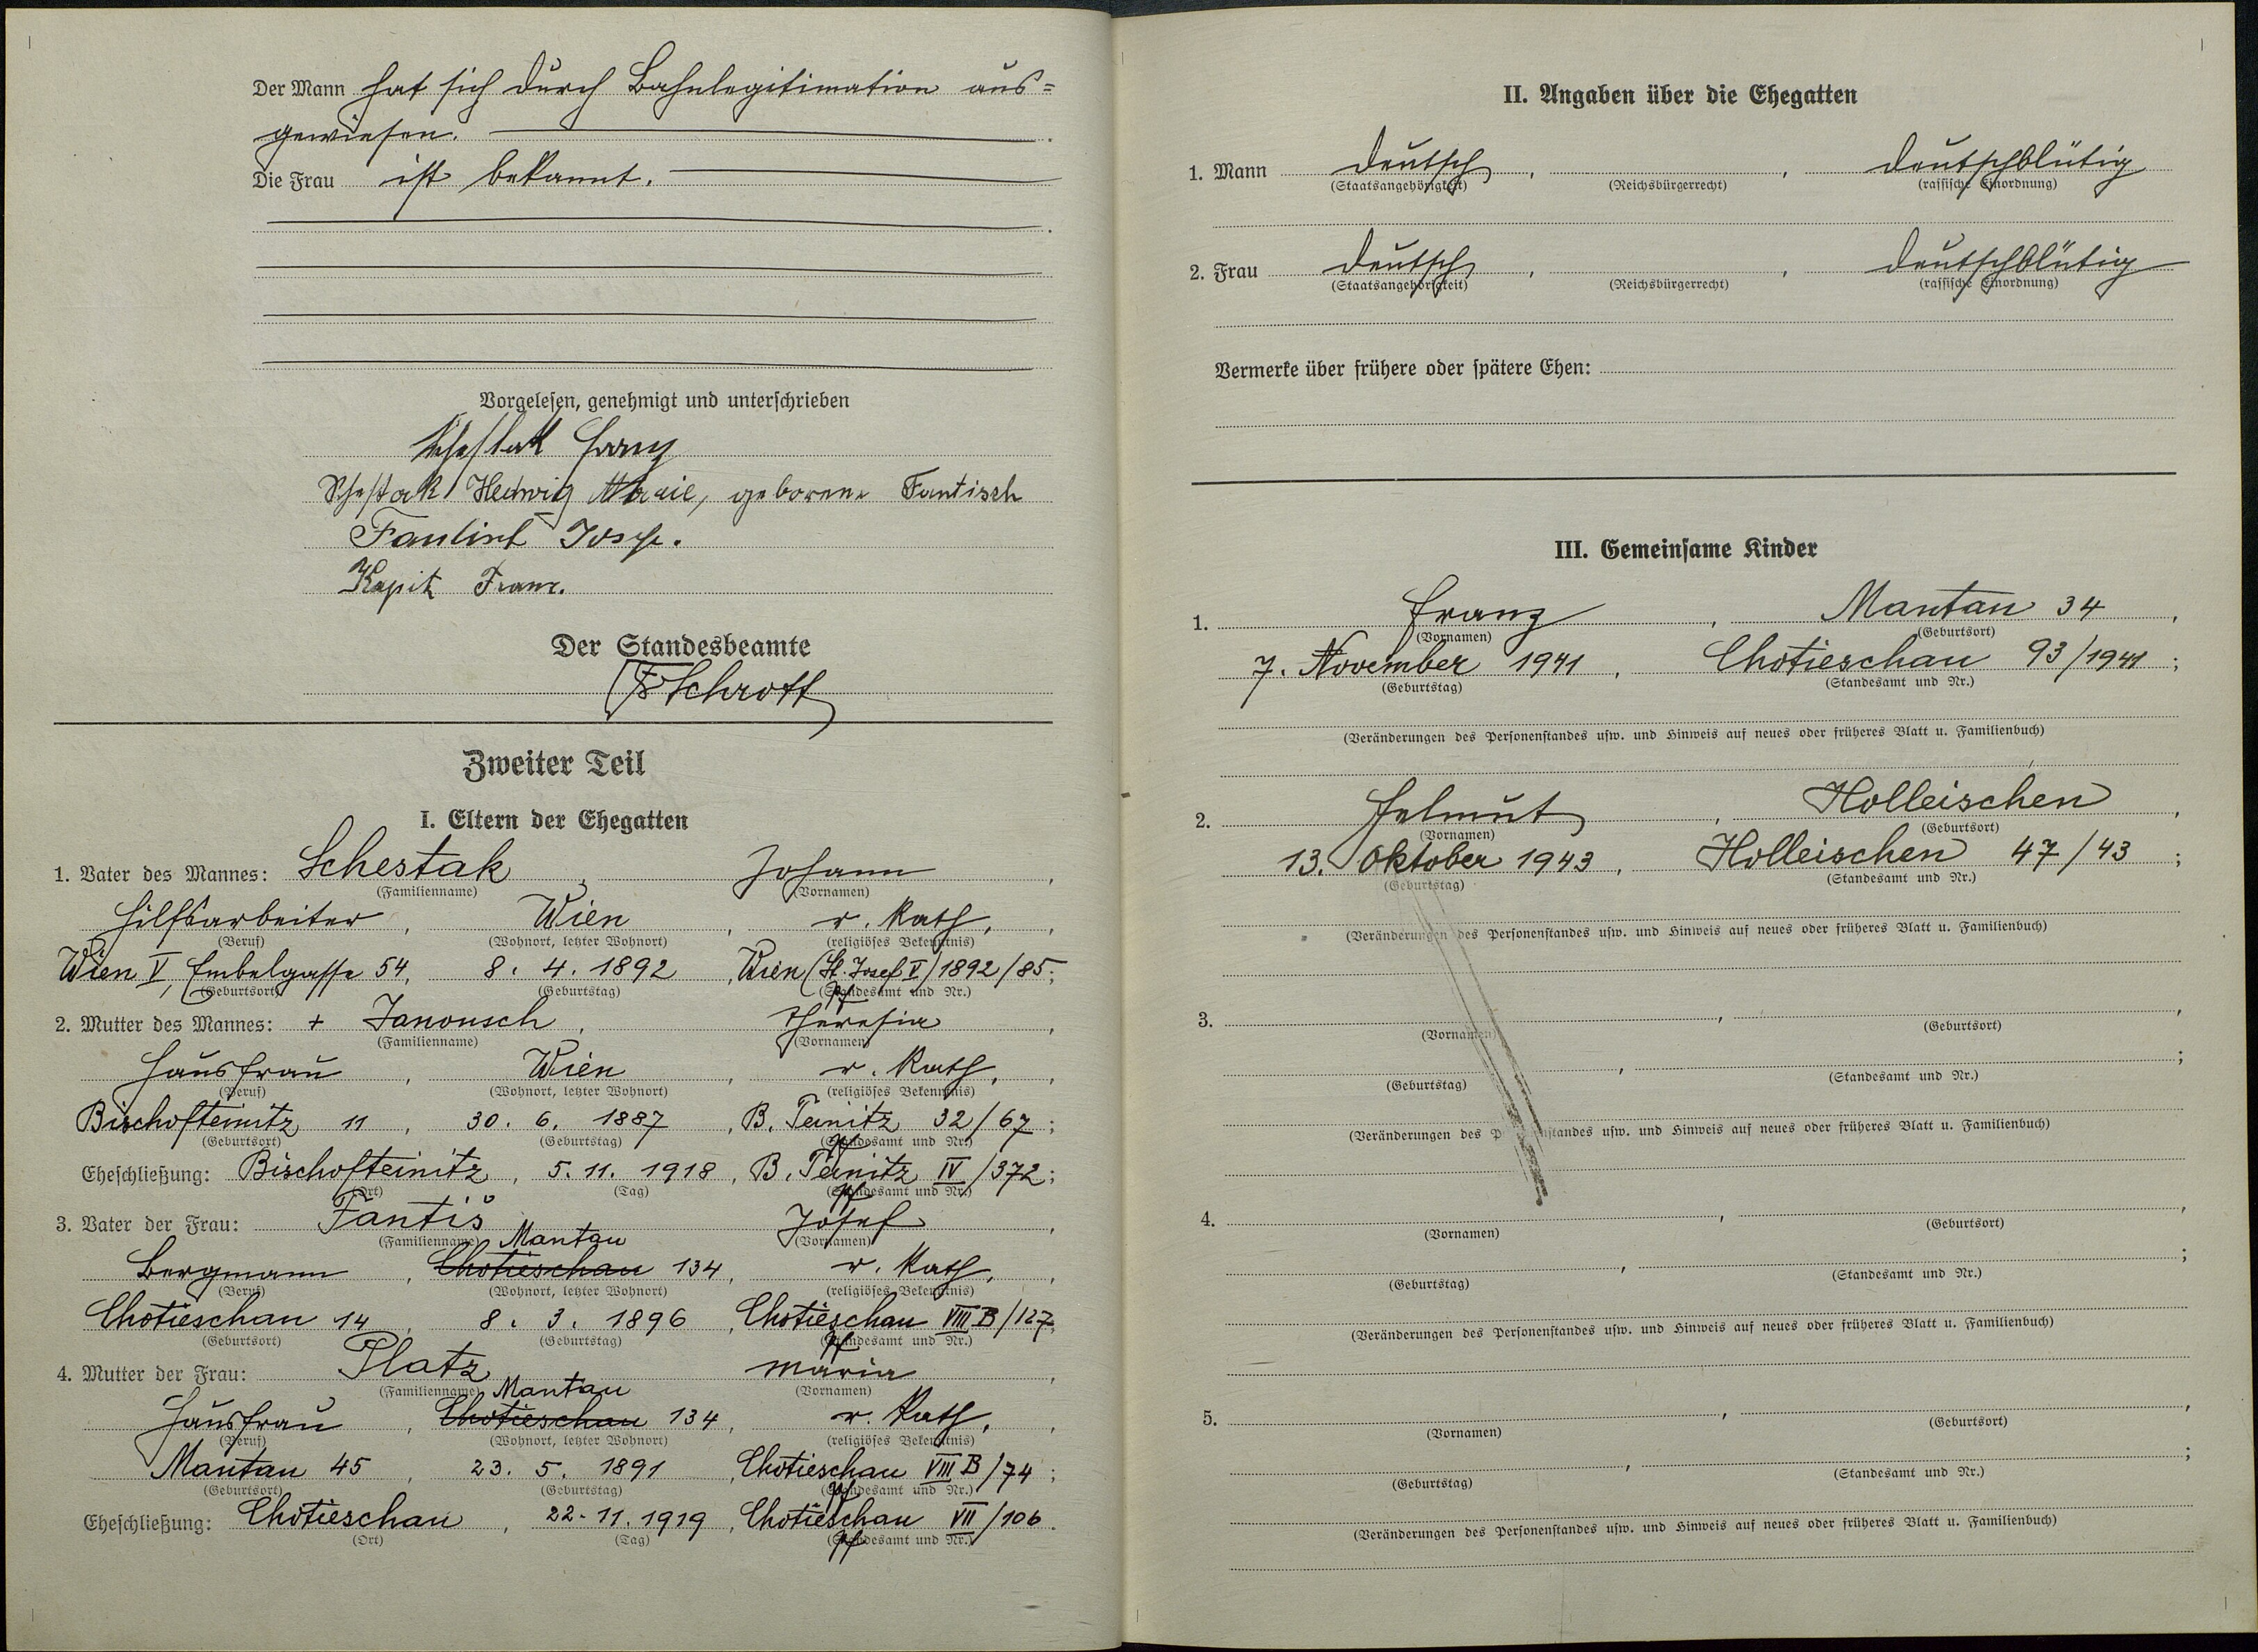 Der Mann hat sich durch Bahnlegitimation aus=
gewiesen.
Die Frau ist bekannt.
Vorgelesen, genehmigt und unterschrieben
Schestak Franz
Schestak Hedwig Marie, geborene Fantisch
Fantisch Josef.
Kapitz Franz.
Der Standesbeamte
Schrott
Zweiter Teil
I. Eltern der Ehegatten
1. Vater des Mannes: Schestak, Johann,
(Familienname) (Vornamen)
Hilfsarbeiter, Wien, r. kath.,
(Beruf) (Wohnort, letzter Wohnort) (religiöses Bekenntnis)
Wien V, Embelgasse 54, 8. 4. 1892, Wien (St. Josef V) 1892/85;
(Geburtsort) (Geburtstag) (Standesamt und Nr.)
2. Mutter des Mannes: + Janousch, Theresia,
(Familienname) (Vornamen)
Hausfrau, Wien, r. kath.,
(Beruf) (Wohnort, letzter Wohnort) (religiöses Bekenntnis)
Bischofteinitz 11, 30. 6. 1887, B. Teinitz 32/67;
(Geburtsort) (Geburtstag) (Standesamt und Nr.)
Eheschließung: Bischofteinitz, 5. 11. 1918, B. Teinitz IV/372;
(Ort) (Tag) (Standesamt und Nr.)
3. Vater der Frau: Fantiš Josef,
(Familienname) Mantau (Vornamen)
Bergmann, Chotieschau 134, r. kath.,
(Beruf) (Wohnort, letzter Wohnort) (religiöses Bekenntnis)
Chotieschau 14, 8. 3. 1896, Chotieschau VIII B/127;
(Geburtsort) (Geburtstag) (Standesamt und Nr.)
4. Mutter der Frau: Platz Maria,
(Familienname) Mantau (Vornamen)
Hausfrau, Chotieschau 134, r. kath.,
(Beruf) (Wohnort, letzter Wohnort) (religiöses Bekenntnis)
Mantau 45, 23. 5. 1891, Chotieschau VIII B/74;
(Geburtsort) (Geburtstag) (Standesamt und Nr.)
Eheschließung: Chotieschau, 22. 11. 1919, Chotieschau VII/106.
(Ort) (Tag) (Standesamt und Nr.)
II. Angaben über die Ehegatten
1. Mann deutsch, , deutschblütig
(Staatsangehörigkeit) (Reichsbürgerrecht) (rassische Einordnung)
2. Frau deutsch, , deutschblütig
(Staatsangehörigkeit) (Reichsbürgerrecht) (rassische Einordnung)
Vermerke über frühere oder spätere Ehen:
III. Gemeinsame Kinder
1. Franz, Mantau 34,
(Vornamen) (Geburtsort)
7. November 1941, Chotieschau 93/1941;
(Geburtstag) (Standesamt und Nr.)
(Veränderungen des Personenstandes usw. und Hinweis auf neues oder früheres Blatt u. Familienbuch)
2. Helmut, Holleischen,
(Vornamen) (Geburtsort)
13. Oktober 1943, Holleischen 47/43;
(Geburtstag) (Standesamt und Nr.)
(Veränderungen des Personenstandes usw. und Hinweis auf neues oder früheres Blatt u. Familienbuch)
3. , ,
(Vornamen) (Geburtsort)
, ;
(Geburtstag) (Standesamt und Nr.)
(Veränderungen des Personenstandes usw. und Hinweis auf neues oder früheres Blatt u. Familienbuch)
4. , ,
(Vornamen) (Geburtsort)
, ;
(Geburtstag) (Standesamt und Nr.)
(Veränderungen des Personenstandes usw. und Hinweis auf neues oder früheres Blatt u. Familienbuch)
5. , ,
(Vornamen) (Geburtsort)
, ;
(Geburtstag) (Standesamt und Nr.)
(Veränderungen des Personenstandes usw. und Hinweis auf neues oder früheres Blatt u. Familienbuch)